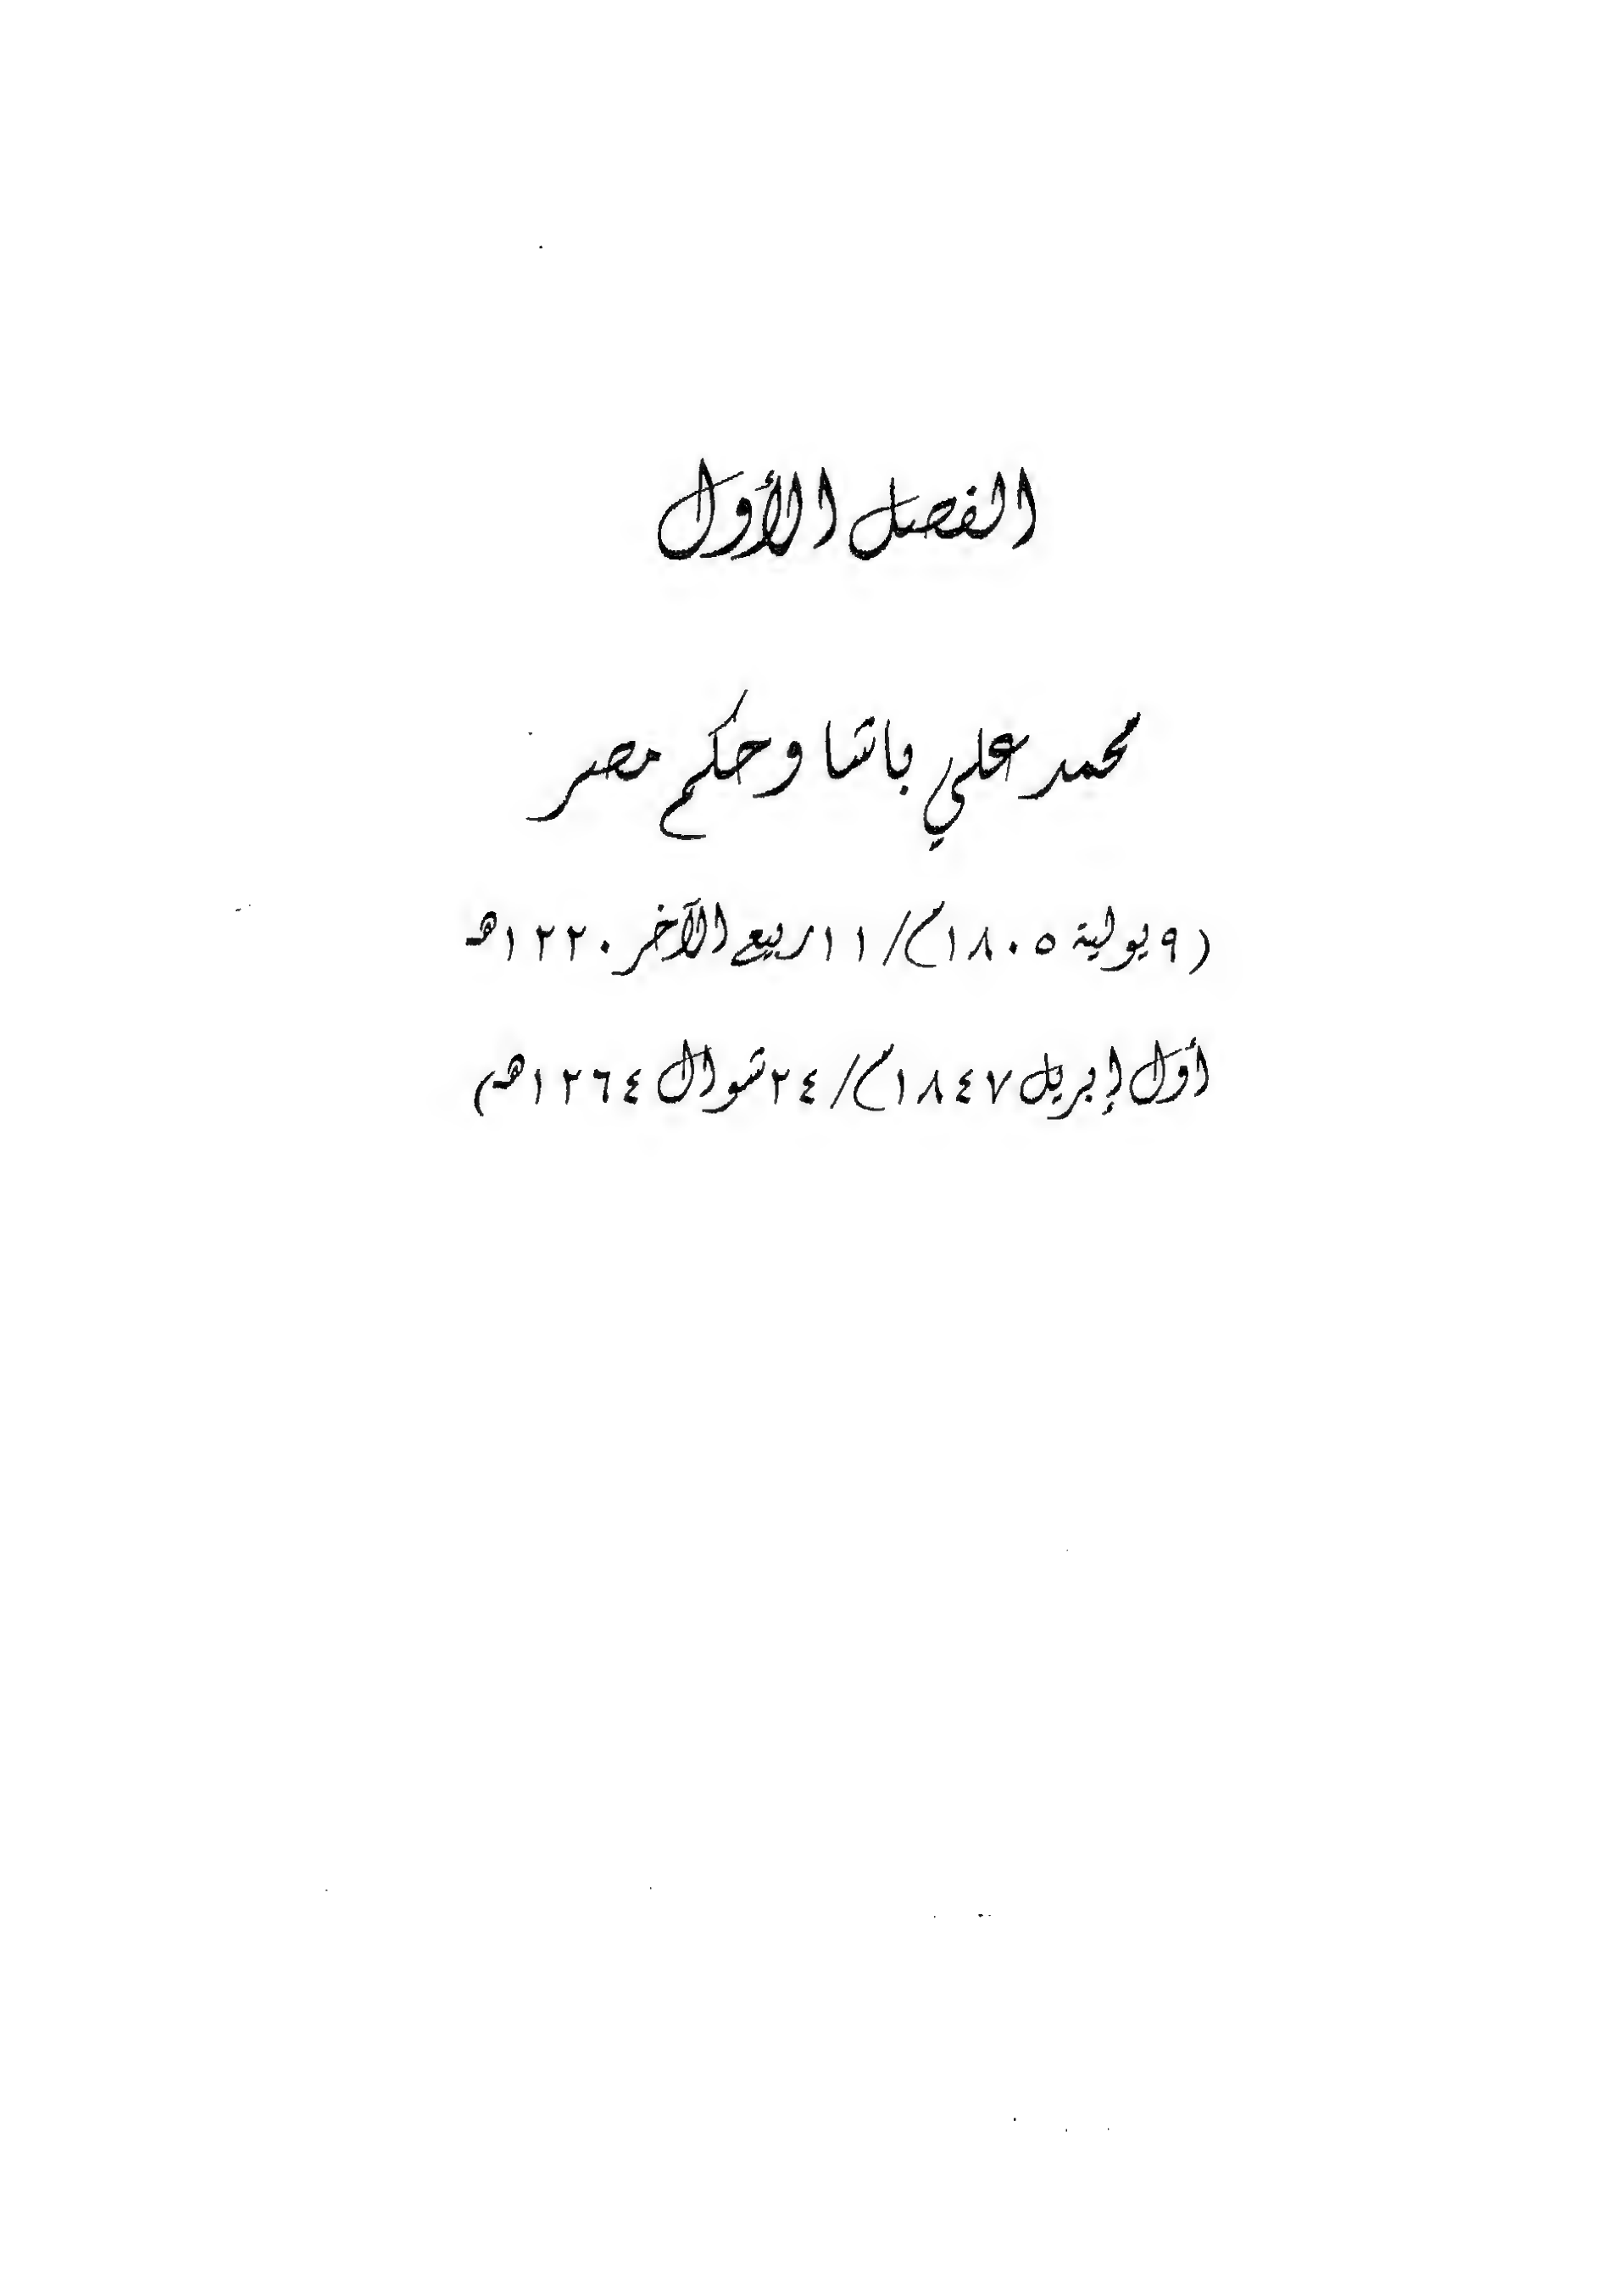 الفصل الأول
محمد علي باشا وحكم مصر
(٩ يولية ١٨٠٥م/ ١١ ربيع الآخر ١٢٢٠هـ
أول إبريل ١٨٤٧م/ ٢٤ شوال ١٢٦٤هـ)